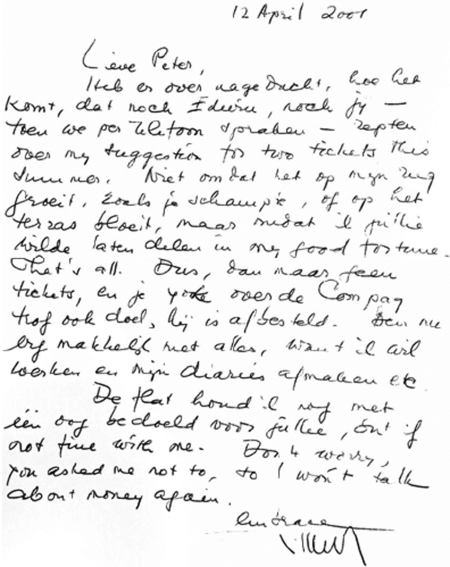 12 April 2001
Lieve Peter,
Heb er over nagedacht, hoe het
komt, dat noch Edwin, noch jij —
toen we per telefoon spraken — repten
over my suggestion for two tickets this
summer. Niet omdat het op mijn rug
groeit, zoals je schampte, of op het
terras bloeit, maar omdat ik jullie
wilde laten delen in my good fortune.
That's all. Dus, dan maar geen
tickets, en je over de Compaq
trof ook doel, hij is afbesteld. Ben nu
erg makkelijk met alles, want ik wil
werken en mijn diaries afmaken etc.
De flat houd ik nog met
één oog bedoeld voor jullie, but if
not fine with me. Don't worry,
you asked me not to, so I won't talk
about money again.
embrace